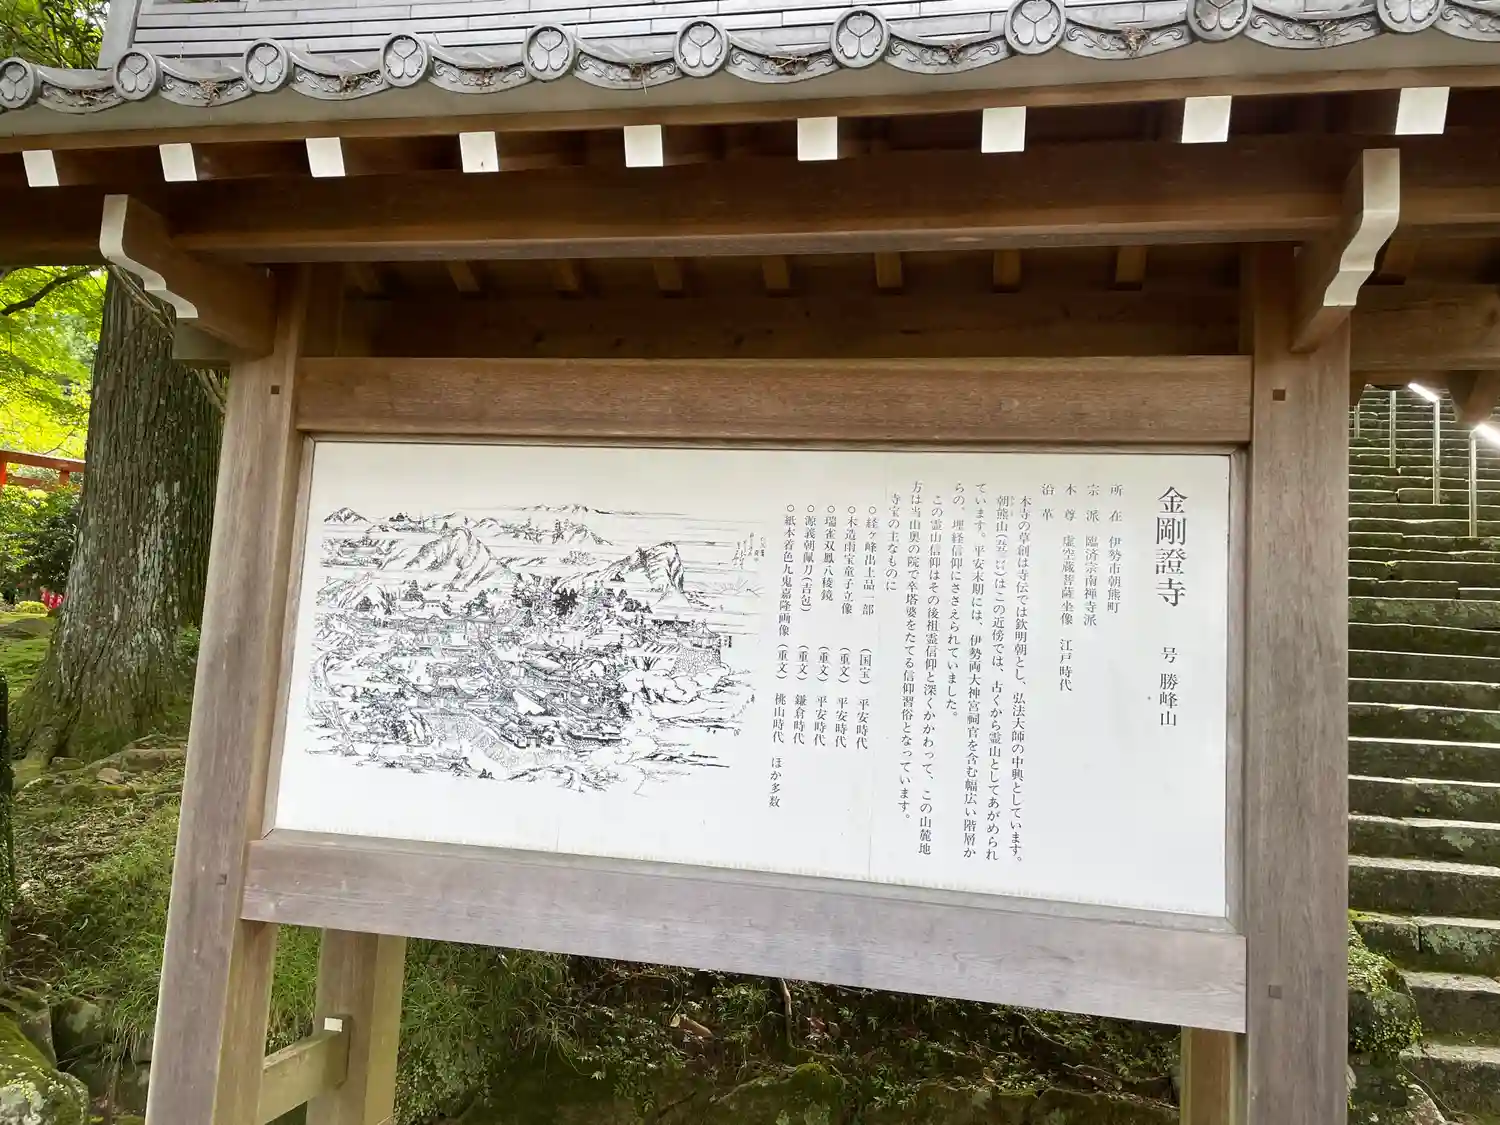 金剛證寺　号 勝峰山
所在 伊勢市朝熊町
宗派 臨済宗南禅寺派
本尊 虚空蔵菩薩坐像 江戸時代
沿革
本寺の草創は寺伝では欽明朝とし、弘法大師の中興としています。
朝熊山(はこの近傍では、古くから霊山としてあがめられ
ています。平安末期には、伊勢両大神宮祠官を含む幅広い階層か
らの、埋経信仰にささえられていました。
この霊山信仰はその後祖霊信仰と深くかかわって、この山麓地
方は当山奥の院で卒塔婆をたてる信仰習俗となっています。
寺宝の主なものに
○経ヶ峰出土品一部 (国宝) 平安時代
○木造雨宝童子立像 (重文) 平安時代
○瑞雀双鳳八稜鏡 (重文) 平安時代
○源義朝佩刀(吉包) (重文) 鎌倉時代
○紙本着色九鬼嘉隆画像 (重文) 桃山時代 ほか多数